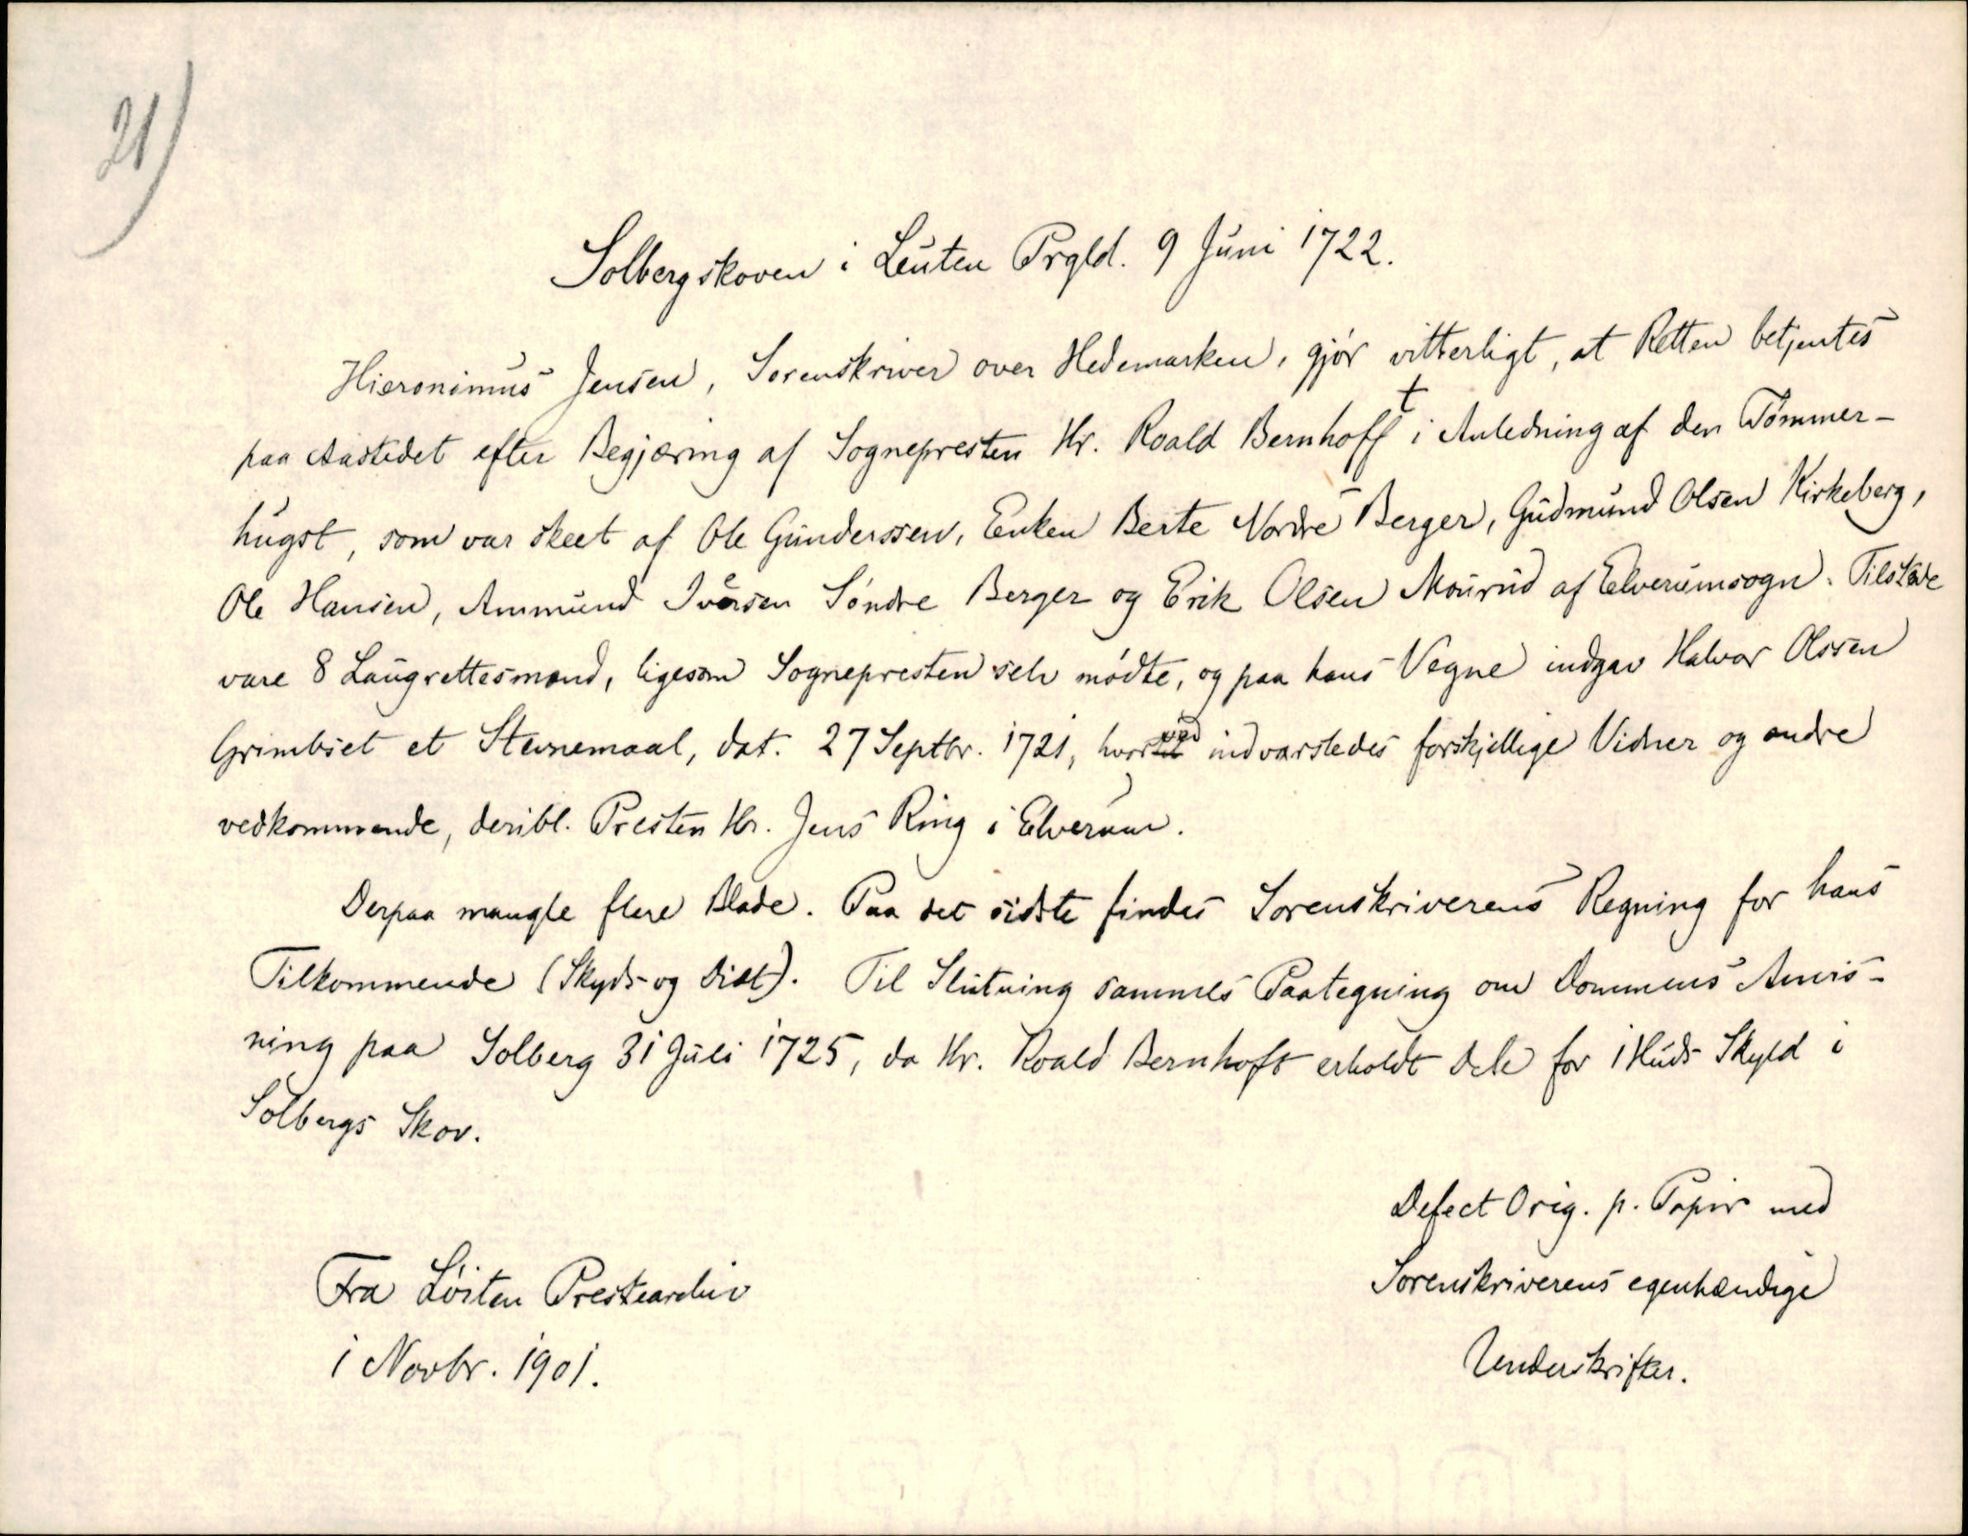 21)
Solbergskoven i Leuten Prgld. 9 Juni 1722.
Hieronimus Jensen, Sorenskriver over Hedemarken, gjør vitterligt, at Retten betjentes
paa Aastedet efter Begjæring af Sognepresten Hr. Roald Bernhoft i Anledning af den Tømmer-
hugst, som var skeet af Ole Gunderssen, Enken Berte Nordre Berger, Gudmund Olsen Kirkeberg,
Ole Hansen, Ammund Iversen Søndre Berger og Erik Olsen Mourud af Elverumsogn. Tilstede
vare 8 Laugrettesmænd, ligesom Sognepresten selv mødte, og paa hans Vegne indgav Halvor Olssen
Grimbset et Stevnemaal, dat. 27 Septbr. 1721, hvorved indvarsledes forskjellige Vidner og andre
vedkommende, deribl. Presten Hr. Jens Ring i Elverum.
Derpaa mangle flere Blade. Paa det sidste findes Sorenskriverens Regning for hans
Tilkommende (Skyds- og Diæt). Til Slutning sammes Paategning om Dommens Anvis-
ning paa Solberg 31 Juli 1725, da Hr. Roald Bernhoft erholdt Dele for 1 Huds Skyld i
Solbergs Skov.
Defect Orig. p. Papir med
Sorenskriverens egenhændige
Underskrifter.
Fra Löiten Prestearchiv
i Novbr. 1901.